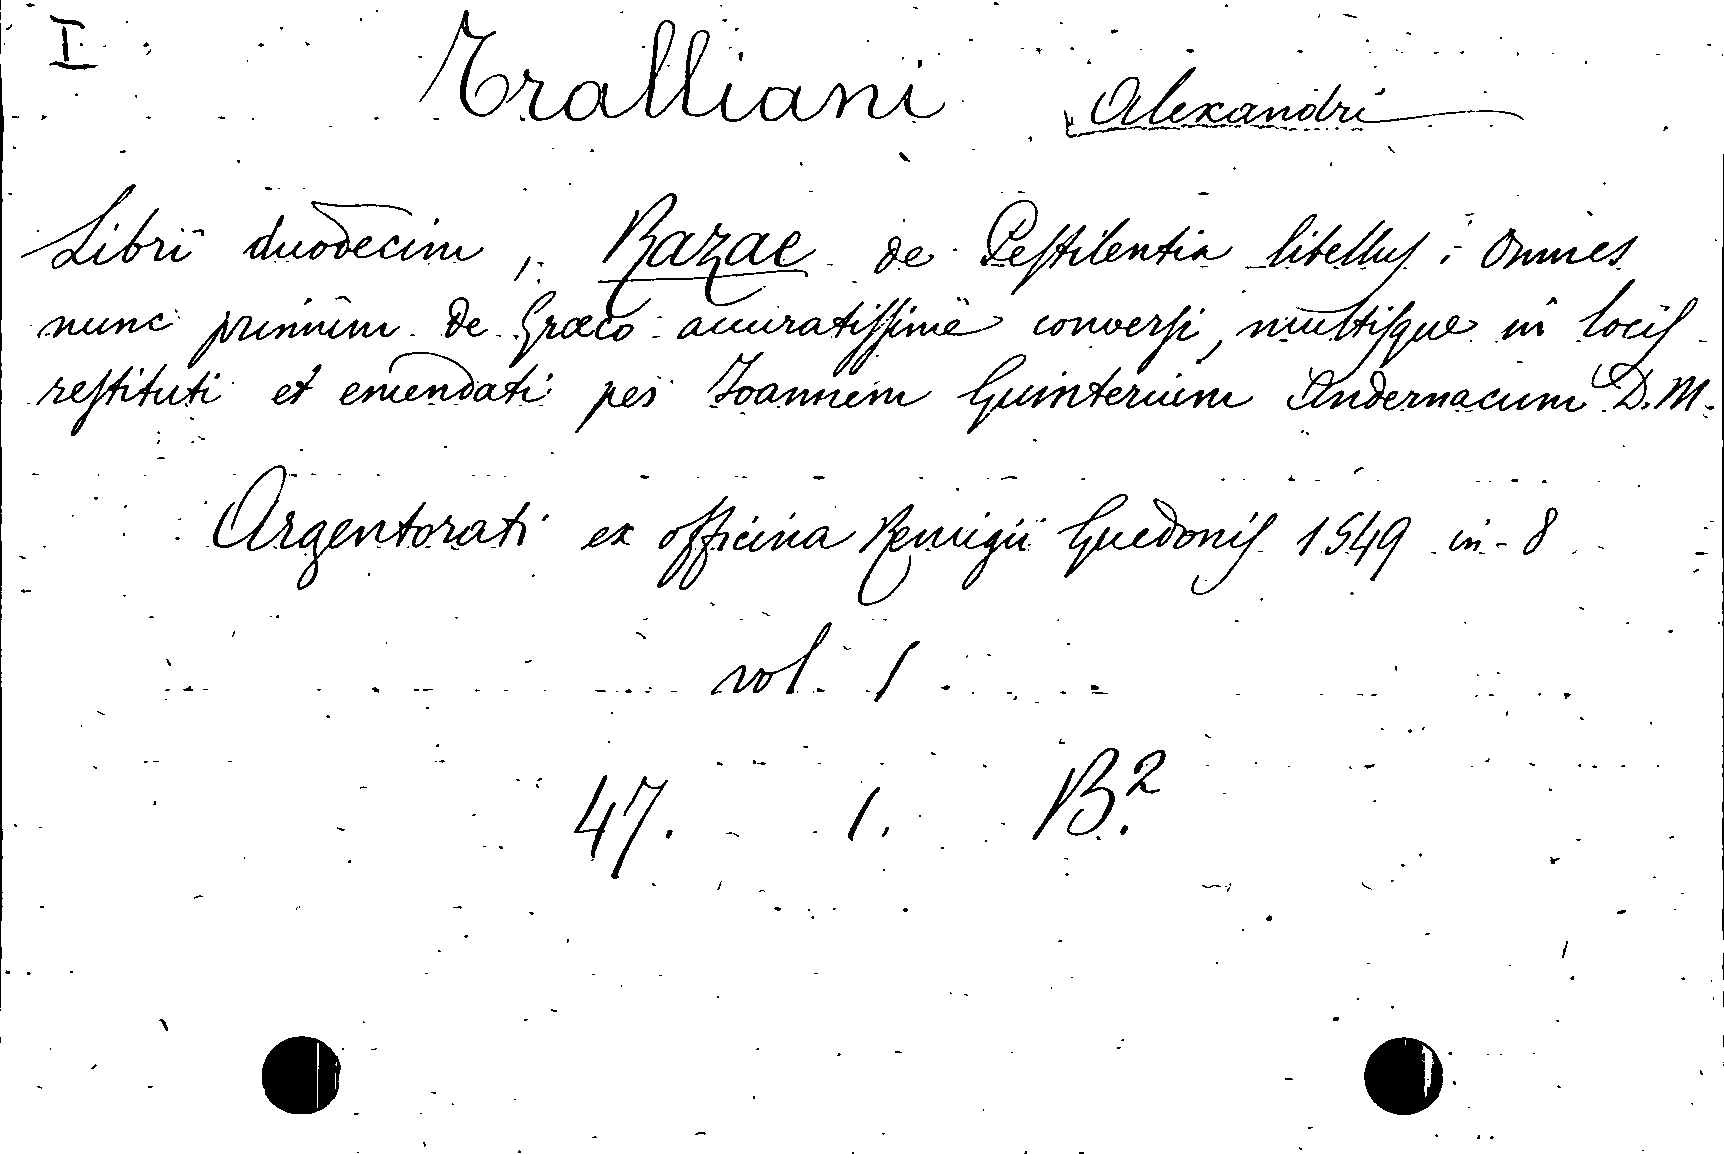 I
Tralliani Alexandri
Libri duodecim, Razae de Pestilentia libellus : omnes
nunc primum de Græco accuratissime conversi, multisque in locis
restituti et emendati per Ioannem Guinterium Andernacum D. M.
Argentorati ex officina Remigii Guedonis 1549 in-8
vol. 1
47. 1. B.2